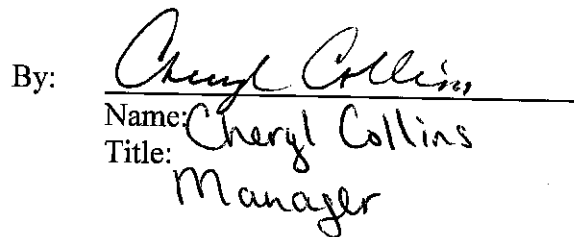 By: Cheryl Collins
Name: Cheryl Collins
Title:
Manager